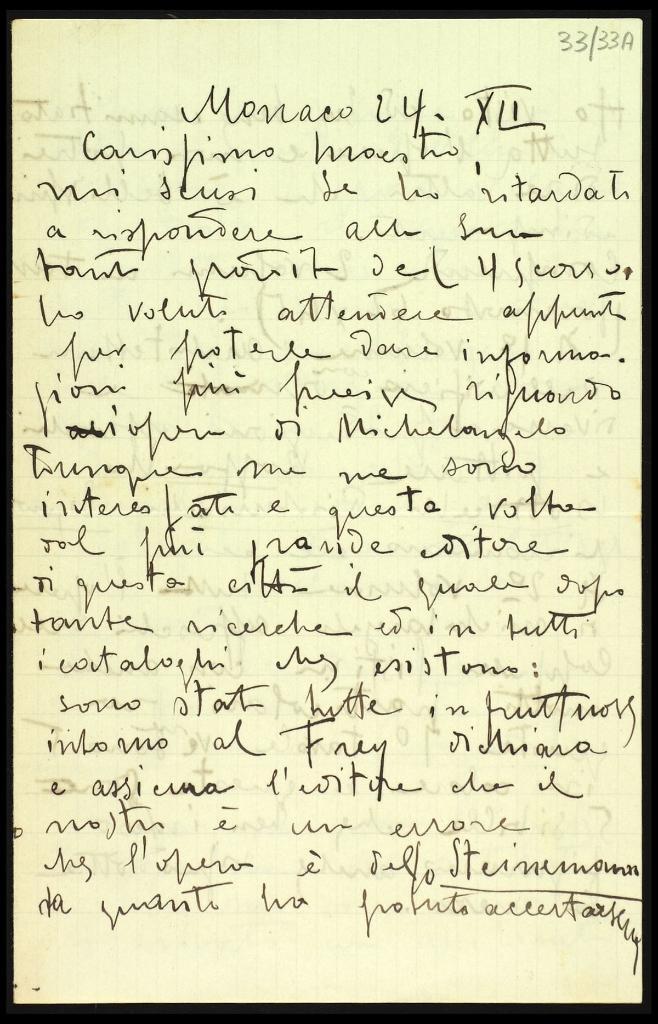 33/33A
Monaco 24. XII
Carissimo Maestro,
mi scusi se ho ritardato
a rispondere alla Sua
tanto gradita del 4 scorso.
ho voluto attendere appunto
per poterle dare informa-
zioni più precise riguardo
l'opera di Michelangelo
Dunque me ne sono
interessato e questa volta
dal più grande editore
di questa città il quale dopo
tante ricerche ed in tutti
i cataloghi che esistono:
sono state tutte infruttuose
intorno al Frey dichiara
e assicura l'editore che il
nostro è un errore
che l'opera è dello Steinemann
da quanto ha potuto accertarsene